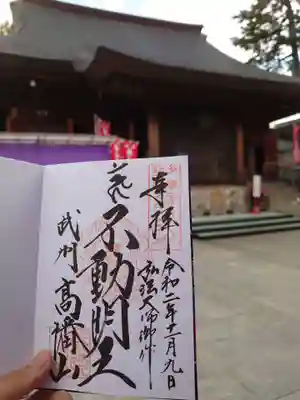 奉拝
令和二年十二月九日
弘法大師御作
不動明王
武州
高幡山